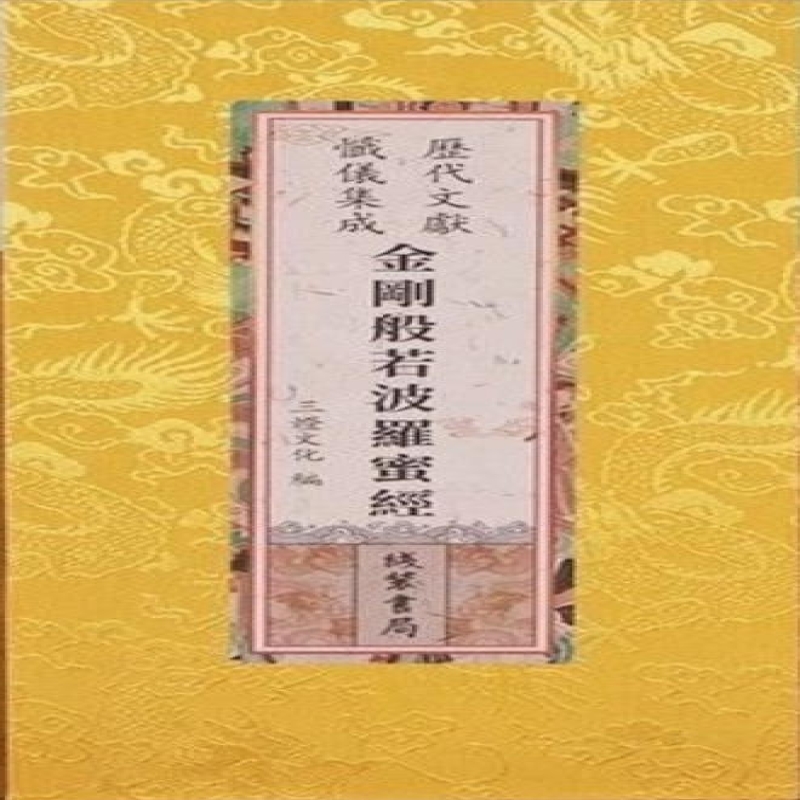 歷代文獻
懺儀集成
金剛般若波羅蜜經
三燈文化 編
线装書局